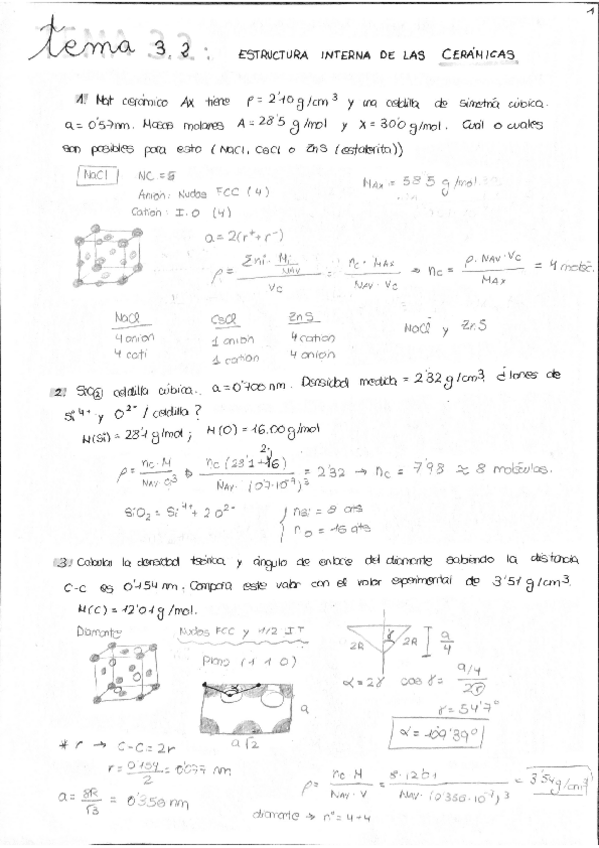 1
tema 3.2: ESTRUCTURA INTERNA DE LAS CERÁMICAS
1. Mat cerámico AX tiene ρ = 2'10 g/cm³ y una celdilla de simetría cúbica.
a = 0'57 nm. Masas molares A = 28'5 g/mol y X = 30'0 g/mol. Cuál o cuales
son posibles para esto (NaCl, CsCl o ZnS (esfalerita))
NaCl NC = 6
MAX = 58'5 g/mol
Anión: Nudos FCC (4)
Catión: I.O (4)
a = 2(r⁺ + r⁻)
ρ = Σni · Mi/NAV / Vc = nc · MAX / NAV · Vc → nc = ρ · NAV · Vc / MAX = 4 moléc.
NaCl CsCl ZnS
4 anion 1 anion 4 cation
4 cati 1 cation 4 anion
NaCl y ZnS
2. SiO₂ celdilla cúbica. a = 0'700 nm. Densidad medida = 2'32 g/cm³. ¿Iones de
Si⁴⁺ y O²⁻ / celdilla?
M(Si) = 28'1 g/mol; M(O) = 16.00 g/mol
ρ = nc · M / NAV · a³ nc (28'1 + 2·16) / NAV · (0'7·10⁻⁷)³ = 2'32 → nc = 7'98 ≈ 8 moléculas.
SiO₂ = Si⁴⁺ + 2O²⁻
nSi = 8 ats
nO = 16 ats
3. Calcular la densidad teórica y ángulo de enlace del diamante sabiendo la distancia
C-C es 0'154 nm. Compara este valor con el valor experimental de 3'51 g/cm³.
M(C) = 12'01 g/mol.
Diamante Nudos FCC y 1/2 IT
Plano (1 1 0)
2R γ 2R a/4
α = 2γ cos γ = a/4 / 2r
γ = 54'7°
α = 109'39°
a
a√2
* r → C-C = 2r
r = 0'154 / 2 = 0'077 nm
a = 8R / √3 = 0'356 nm
ρ = nc M / NAV · V = 8·12'01 / NAV · (0'356·10⁻⁷)³ = 3'54 g/cm³
diamante → nº = 4+4